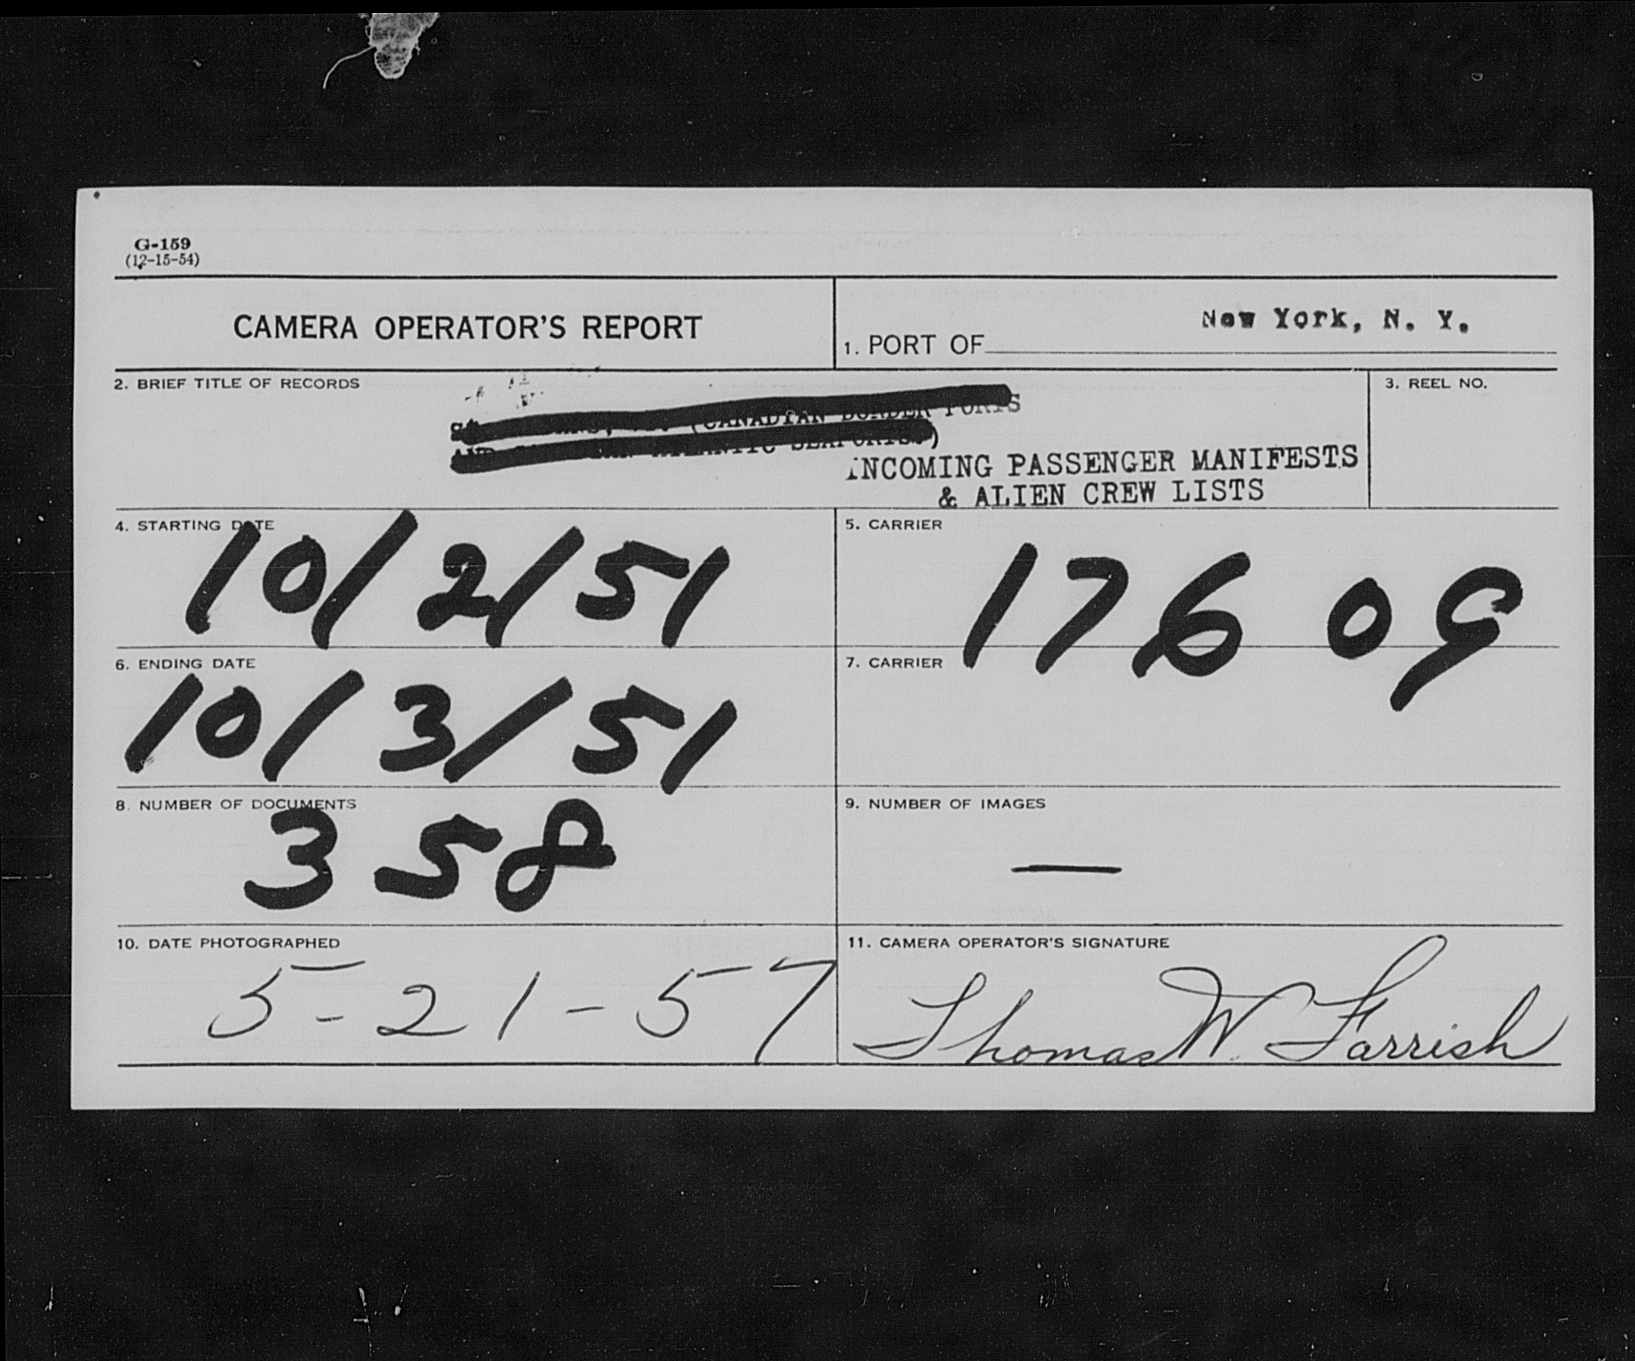 G-159
(12-15-54)
CAMERA OPERATOR'S REPORT
1. PORT OF New York, N. Y.
2. BRIEF TITLE OF RECORDS
3. REEL NO.
(CANADIAN BORDER PORTS
ATLANTIC SEAPORTS.)
INCOMING PASSENGER MANIFESTS
& ALIEN CREW LISTS
4. STARTING DATE
10/2/51
5. CARRIER
17609
6. ENDING DATE
10/3/51
7. CARRIER
8. NUMBER OF DOCUMENTS
358
9. NUMBER OF IMAGES
—
10. DATE PHOTOGRAPHED
5-21-57
11. CAMERA OPERATOR'S SIGNATURE
Thomas W. Farrish